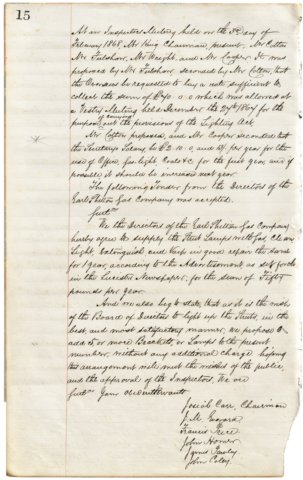 15
At an Inspectors Meeting held on the 3rd day of
February 1868 Mr King Chairman, present, Mr Cotton
Mr Fulshaw, Mr Wright, and Mr Cooper. It was
proposed by Mr Fulshaw, seconded by Mr Cotton, that
the Overseers be requested to lay a rate sufficient to
collect the sum of £ 0. 0 which was allowed at
a Vestry Meeting held December the 27th 1867 for the
purpose of carrying out the provisions of the Lighting Act
Mr Cotton proposed, and Mr Cooper seconded that
the Secretarys Salary be £2. 10. 0, and per year for the
use of Office, Gas Light Coals &c for the first year, and if
possible it should be increased next year.
The following Tender from the Directors of the
Earl Shilton Gas Company was accepted.
Gentn
We the Directors of the Earl Shilton Gas Company
hereby agree to supply the Street Lamps with Gas, Clean
Light, Extinguish and keep in good repair the same
for 1 year, according to the Advertisement as set forth
in the Leicester Newspaper, for the sum of Fifty
pounds per year.
And we also beg to state that as it is the wish
of the Board of Directors to light up the Streets, in the
best and most satisfactory manner, we propose to
add 5 or more Brackets or Lamps to the present
number, without any additional charge hoping
this arrangement will meet the needs of the public,
and the approval of the Inspectors. We are
Gentn Your Obedient Servants
Josiah Carr, Chairman
J. M. Everard
Francis Price
John Homer
James Pawley
John Coley